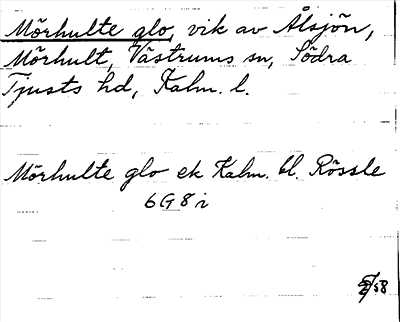 Mörhulte glo, vik av Ålsjön,
Mörhult, Västrums sn, Södra
Tjusts hd, Kalm. l.
Mörhulte glo ek Kalm. bl. Rössle
6G8i